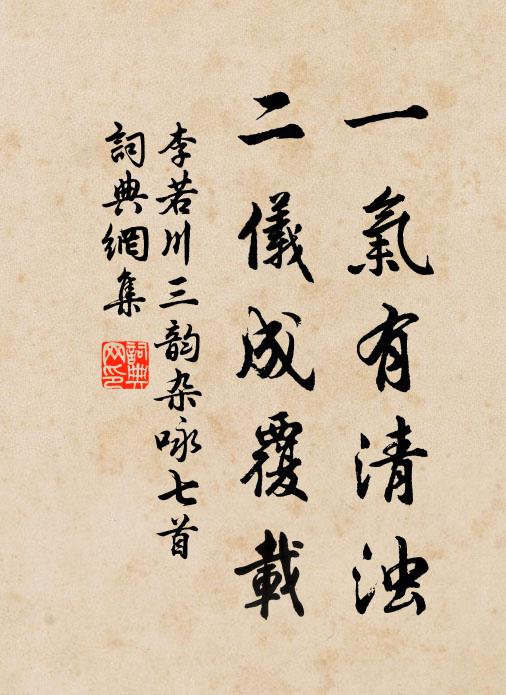 一氣有清浊
二儀成覆載
李若川三韵杂咏七首
詞典網集
詞典网印